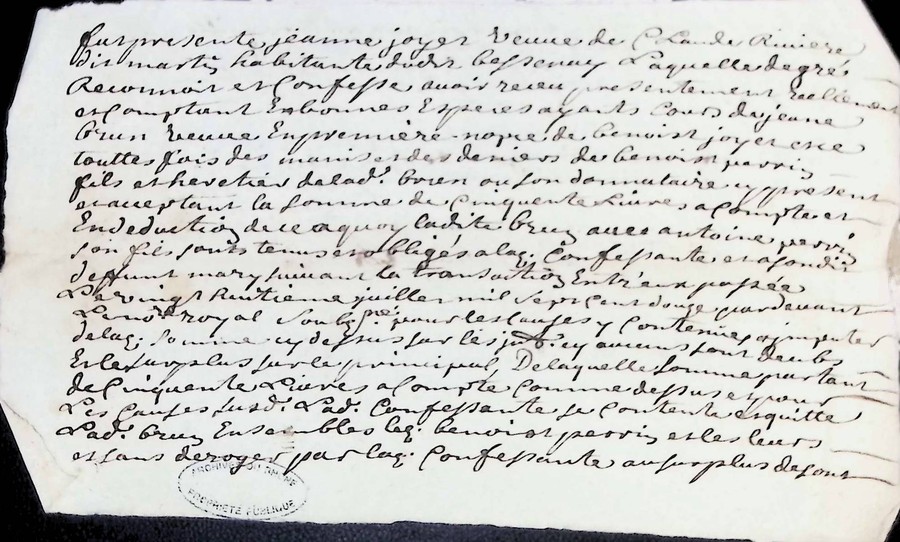 fut presente jeanne joyer veuve de Claude Riviere
dit martin habitante dudit bessenay Laquelle de gré
Reconnoit et Confesse avoir receu presentement Reellement
et Comptant En bonnes Especes ayants Cours de jeane
brun veuve En premiere nopce de benoist joyer
touttes fois des mains et des deniers de benoist perrin
fils et heretier de lad. brun ou son donnataire cy present
et acceptant la somme de Cinquente Livres a Compte et
En deduction de ce a quoy ladite brun avec antoine perrin
son fils sonts tenus et obligés a lad. Confessante et a sondit
deffunt mary suivant la transaction Entr'eux passée
Le vingt huitieme juillet mil sept cent douze pardevant
Le not. royal soubsig.né pour les Causes y Contenues a imputer
de lad. somme cy dessus sur les si aucuns sont deubs
Et le surplus sur le principal, De laquelle somme partant
de Cinquente Livres a Compte Comme dessus et pour
Les Causes susd. Lad. Confessante se Contente et quitte
Lad. brun Ensembles led. benoist perrin et les leurs
et sans deroger par lad. Confessante au surplus de sont
ARCHIVES DU RHONE
PROPRIÉTÉ PUBLIQUE